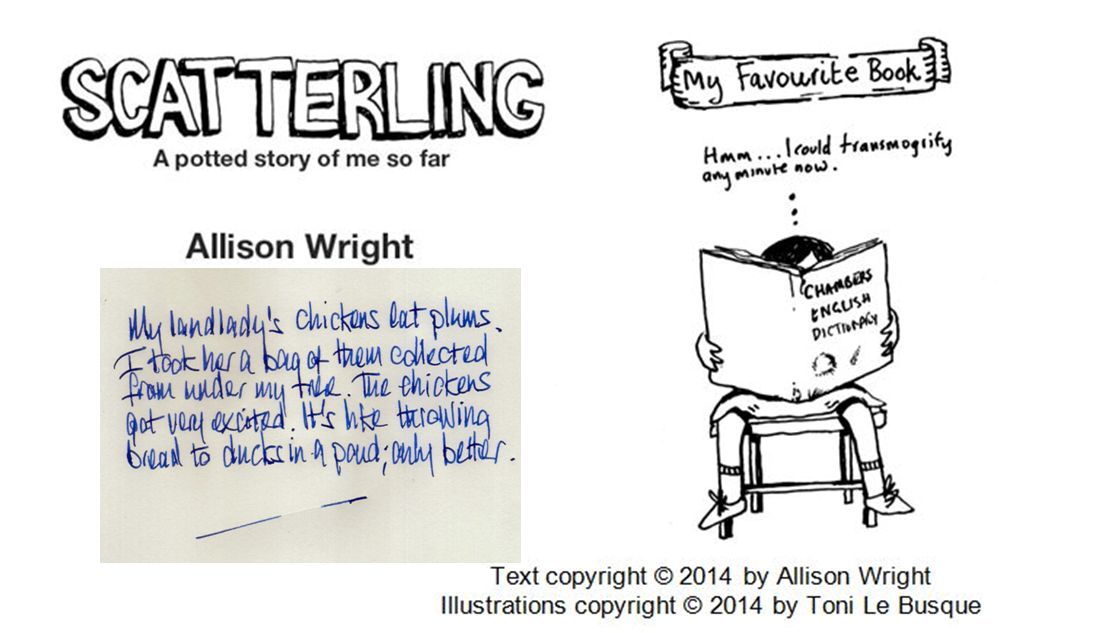 SCATTERLING
A potted story of me so far
Allison Wright
My landlady's chickens eat plums.
I took her a bag of them collected
from under my tree. The chickens
got very excited. It's like throwing
bread to ducks in a pond; only better.
My Favourite Book
Hmm...I could transmogrify
any minute now.
CHAMBERS
ENGLISH
DICTIONARY
Text copyright © 2014 by Allison Wright
Illustrations copyright © 2014 by Toni Le Busque